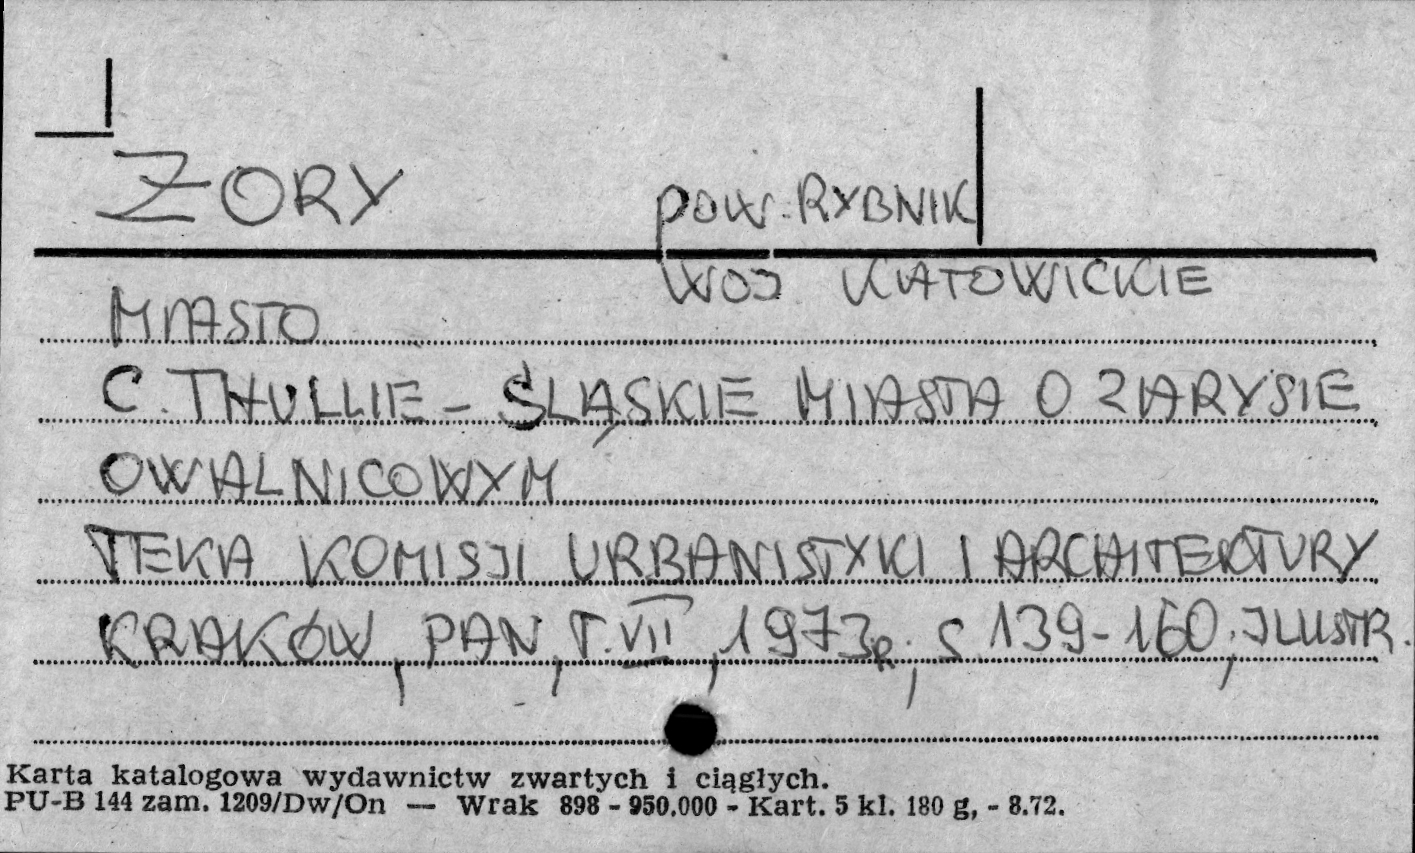 ŻORY pow. RYBNIK
WOJ KATOWICKIE
MIASTO
C. THULLIE – ŚLĄSKIE MIASTA O ZARYSIE
OWALNICOWYM
TEKA KOMISJI URBANISTYKI I ARCHITEKTURY
KRAKÓW, PAN, T. VII, 1973R., S 139-160, ILUSTR.
Karta katalogowa wydawnictw zwartych i ciągłych.
PU-B 144 zam. 1209/Dw/On — Wrak 898 - 950.000 - Kart. 5 kl. 180 g, - 8.72.